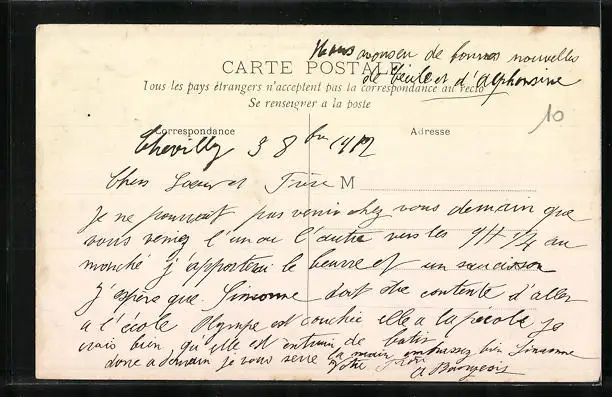 Nous avons eu de bonnes nouvelles
de Cécile et d'Alphonsine
CARTE POSTALE
Tous les pays étrangers n'acceptent pas la correspondance au recto
Se renseigner a la poste
10
Correspondance
Adresse
Chevilly 3 8bre 1912
Chers Soeur et Frère
M
Je ne pourrait pas venir chez vous demain que
vous veniez l'un ou l'autre vers les 9H 1/4 au
marché j'apporterai le beurre et un saucisson
J'espère que Simonne doit être contente d'aller
a l'école Olympe est couchée elle a la
crais bien qu'elle est entrain de
donc a demain je vous serre la main embrassez bien Simonne
Votre Frère
A Bourgeois